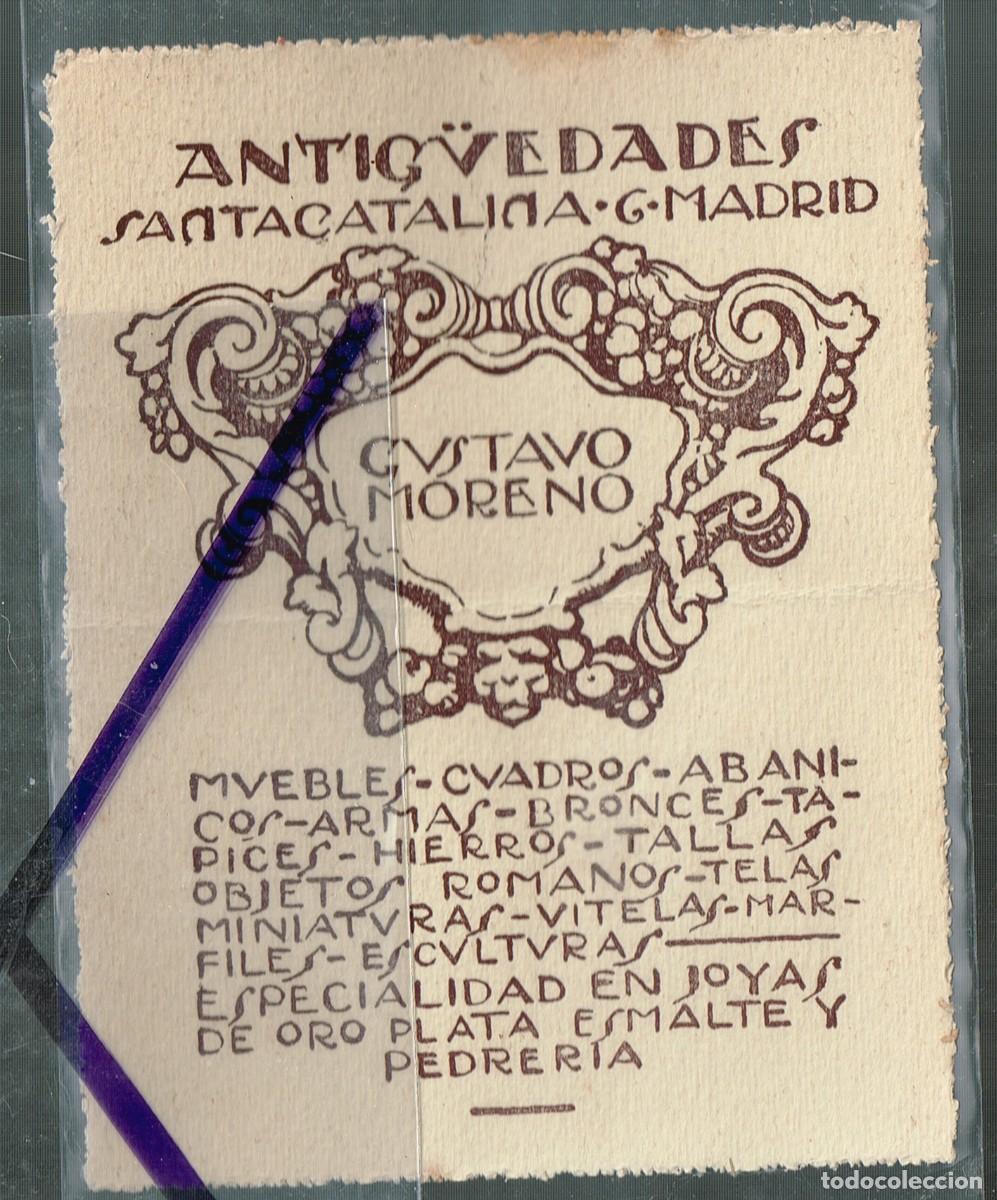 ANTIGÜEDADES
SANTA CATALINA · 6 · MADRID
GVSTAVO
MORENO
MVEBLES - CVADROS - ABANI-
COS - ARMAS - BRONCES - TA-
PICES - HIERROS - TALLAS
OBJETOS ROMANOS - TELAS
MINIATVRAS - VITELAS - MAR-
FILES - ESCVLTVRAS
ESPECIALIDAD EN JOYAS
DE ORO PLATA ESMALTE Y
PEDRERIA
todocoleccion